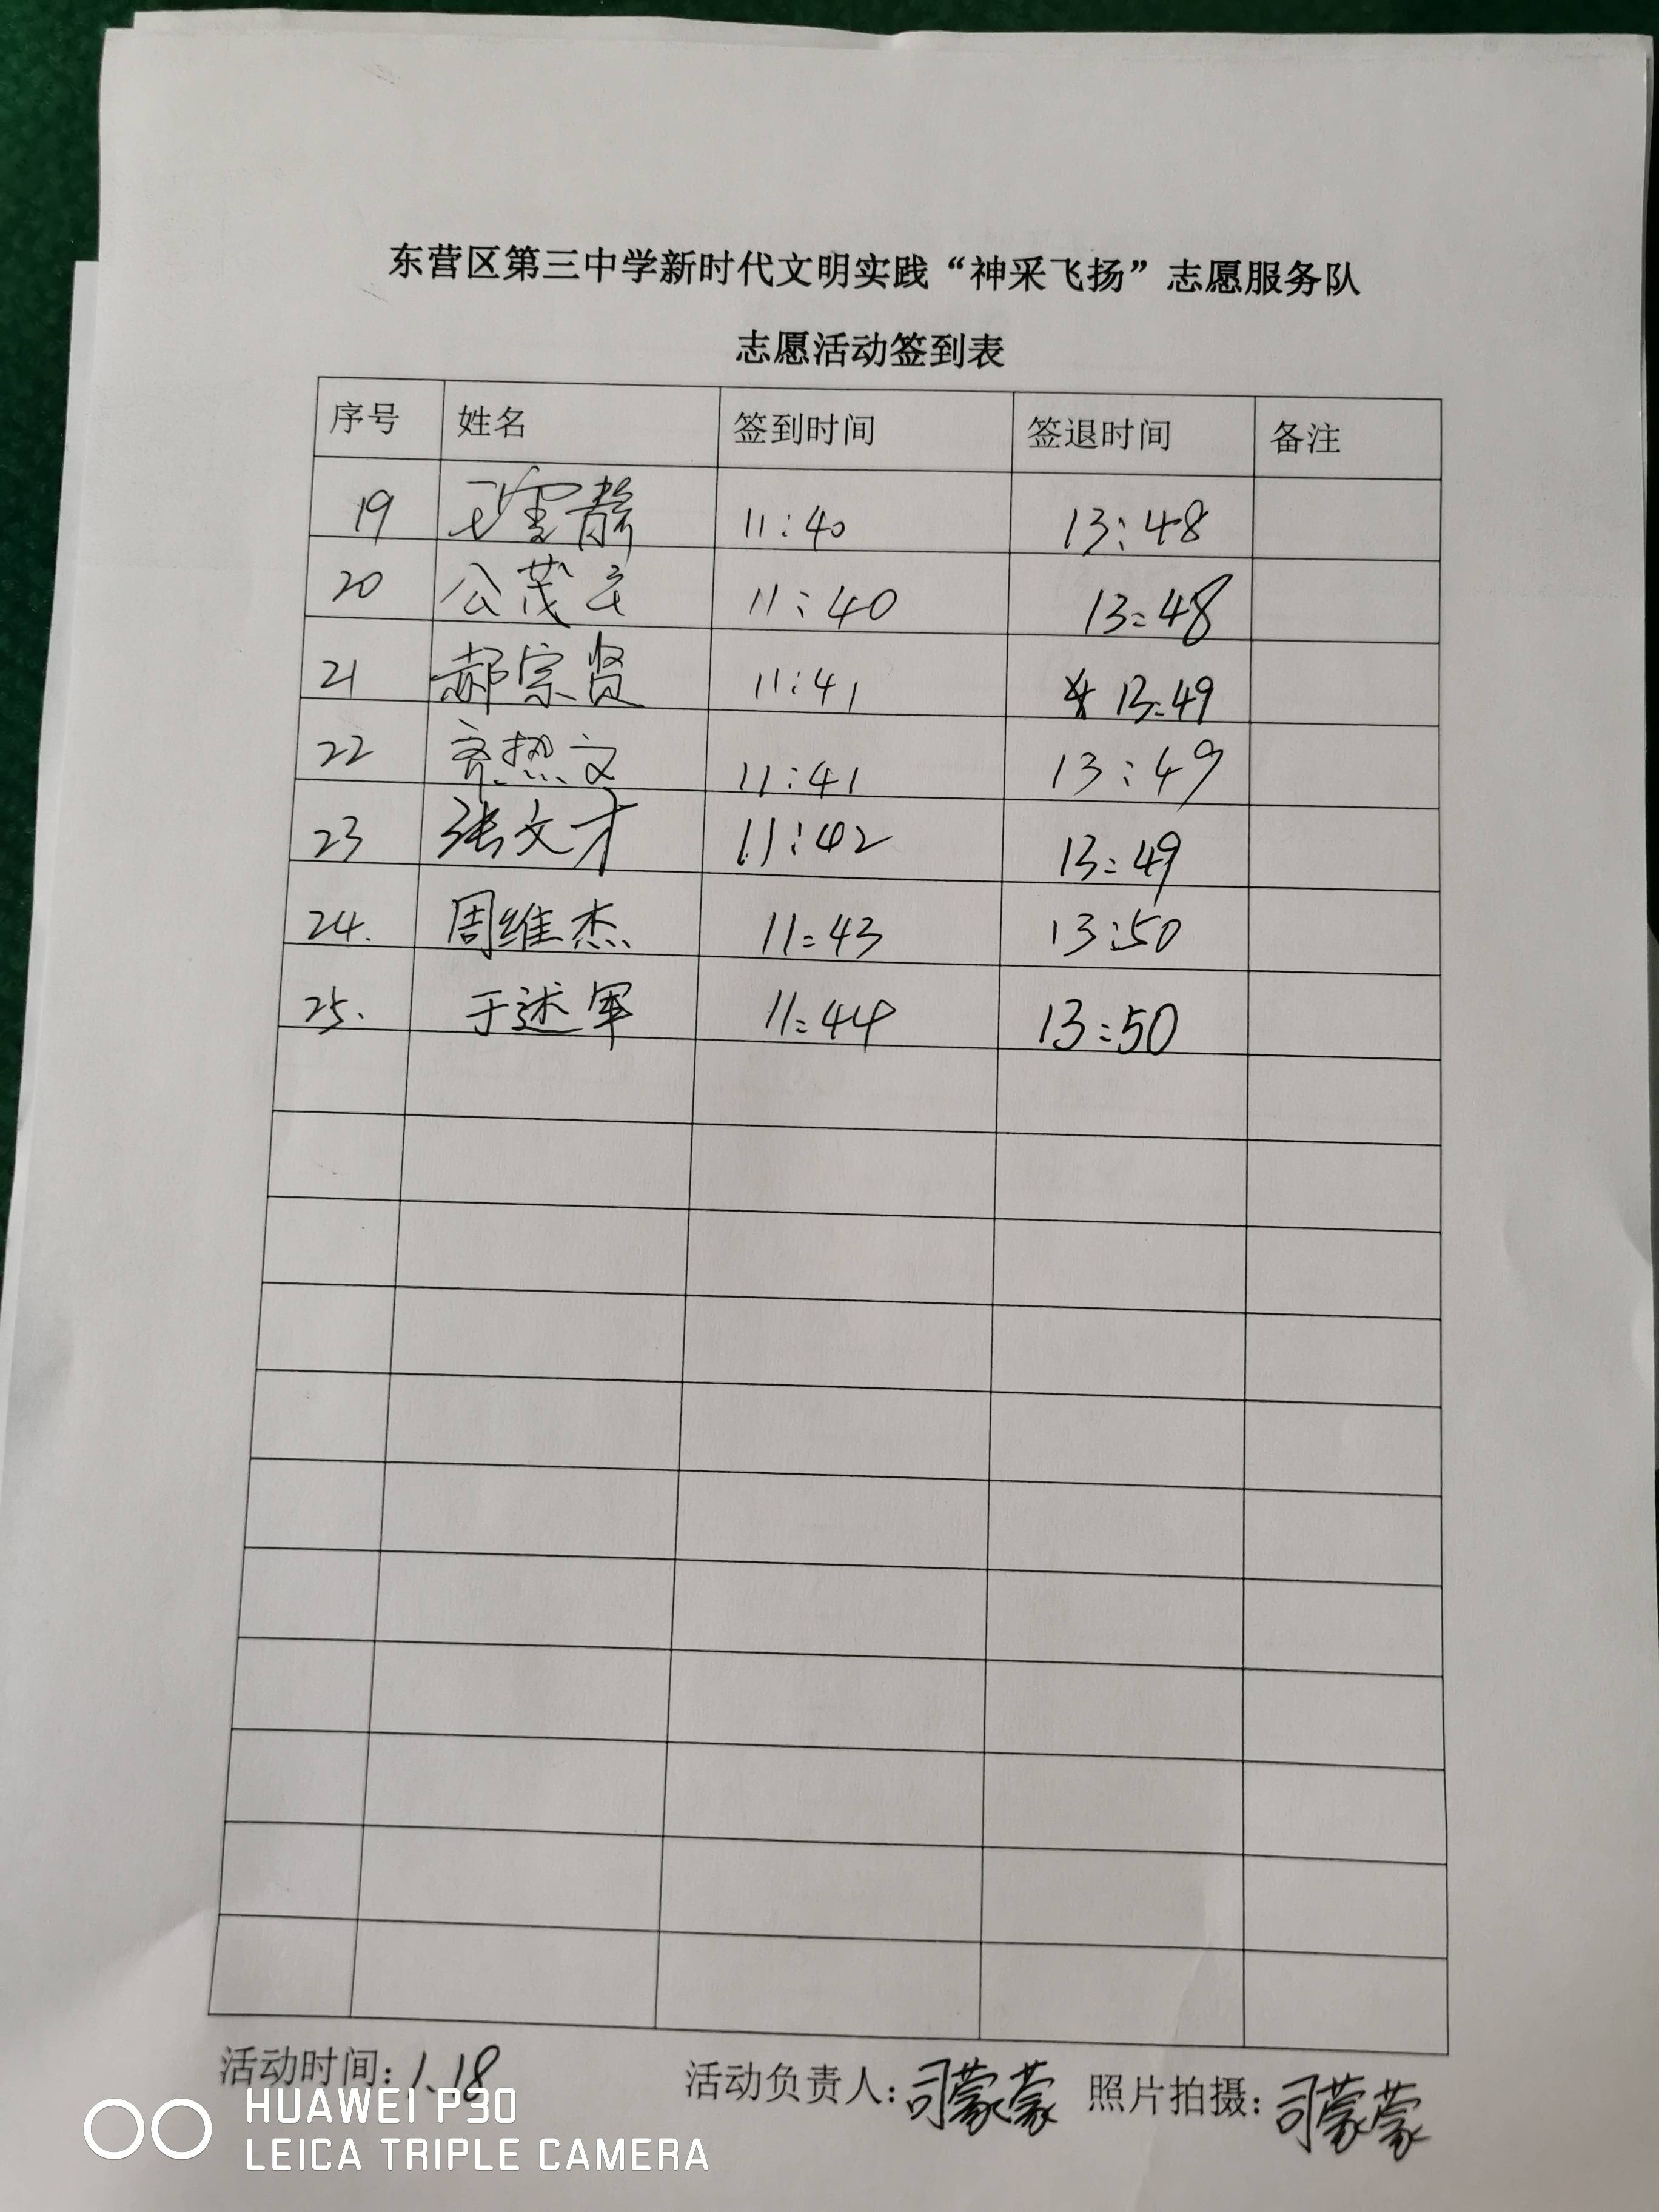 东营区第三中学新时代文明实践“神采飞扬”志愿服务队
志愿活动签到表
序号 姓名 签到时间 签退时间 备注
19 11:40 13:48
20 公茂云 11:40 13:48
21 郝宗贤 11:41 13:49
22 文 11:41 13:49
23 张文才 11:42 13:49
24. 周维杰 11:43 13:50
25. 于述军 11:44 13:50
活动时间：1.18 活动负责人：司蒙蒙 照片拍摄：司蒙蒙
HUAWEI P30
LEICA TRIPLE CAMERA